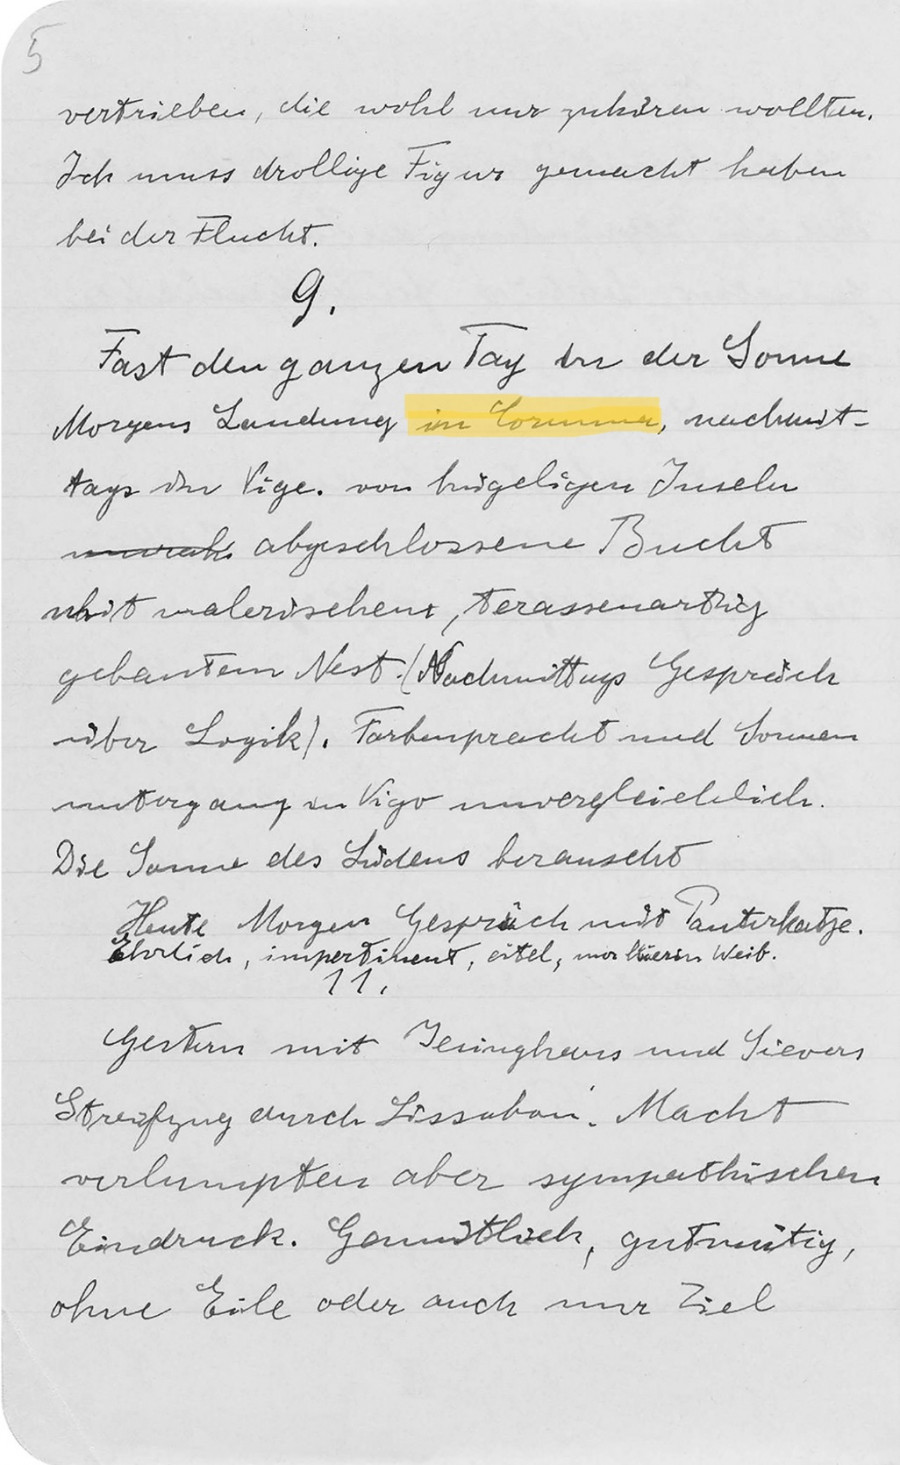 5
vertrieben, die wohl nur zuhören wollten.
Ich muss drollige Figur gemacht haben
bei der Flucht.
9.
Fast den ganzen Tag in der Sonne
Morgens Landung in Corunna, nachmit-
tags in Vigo. von hügeligen Inseln
abgeschlossene Bucht
mit malerischem, terassenartig
gebautem Nest. (Nachmittags Gespräch
über Logik). Farbenpracht und Sonnen
untergang in Vigo unvergleichlich.
Die Sonne des Südens berauscht
Heute Morgen Gespräch mit Panterkatze.
Ehrlich, impertinent, eitel, Weib.
11.
Gestern mit Jesinghaus und Sievers
Streifzug durch Lissabon. Macht
verlumpten aber sympathischen
Eindruck. Gemütlich, gutmütig,
ohne Eile oder auch nur Ziel